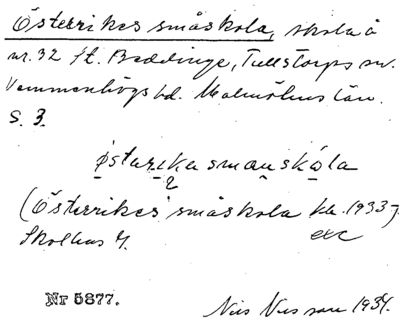 Österrikes småskola, skola å
nr. 32 St. Beddinge, Tullstorps sn.
Vemmenhögs hd. Malmöhus län.
S. 3.
østarika småuskåla
2
(Österrikes småskola kbl. 1933).
Skolhus 4. exc
Nr 5877.
Nils Nilsson 1934.